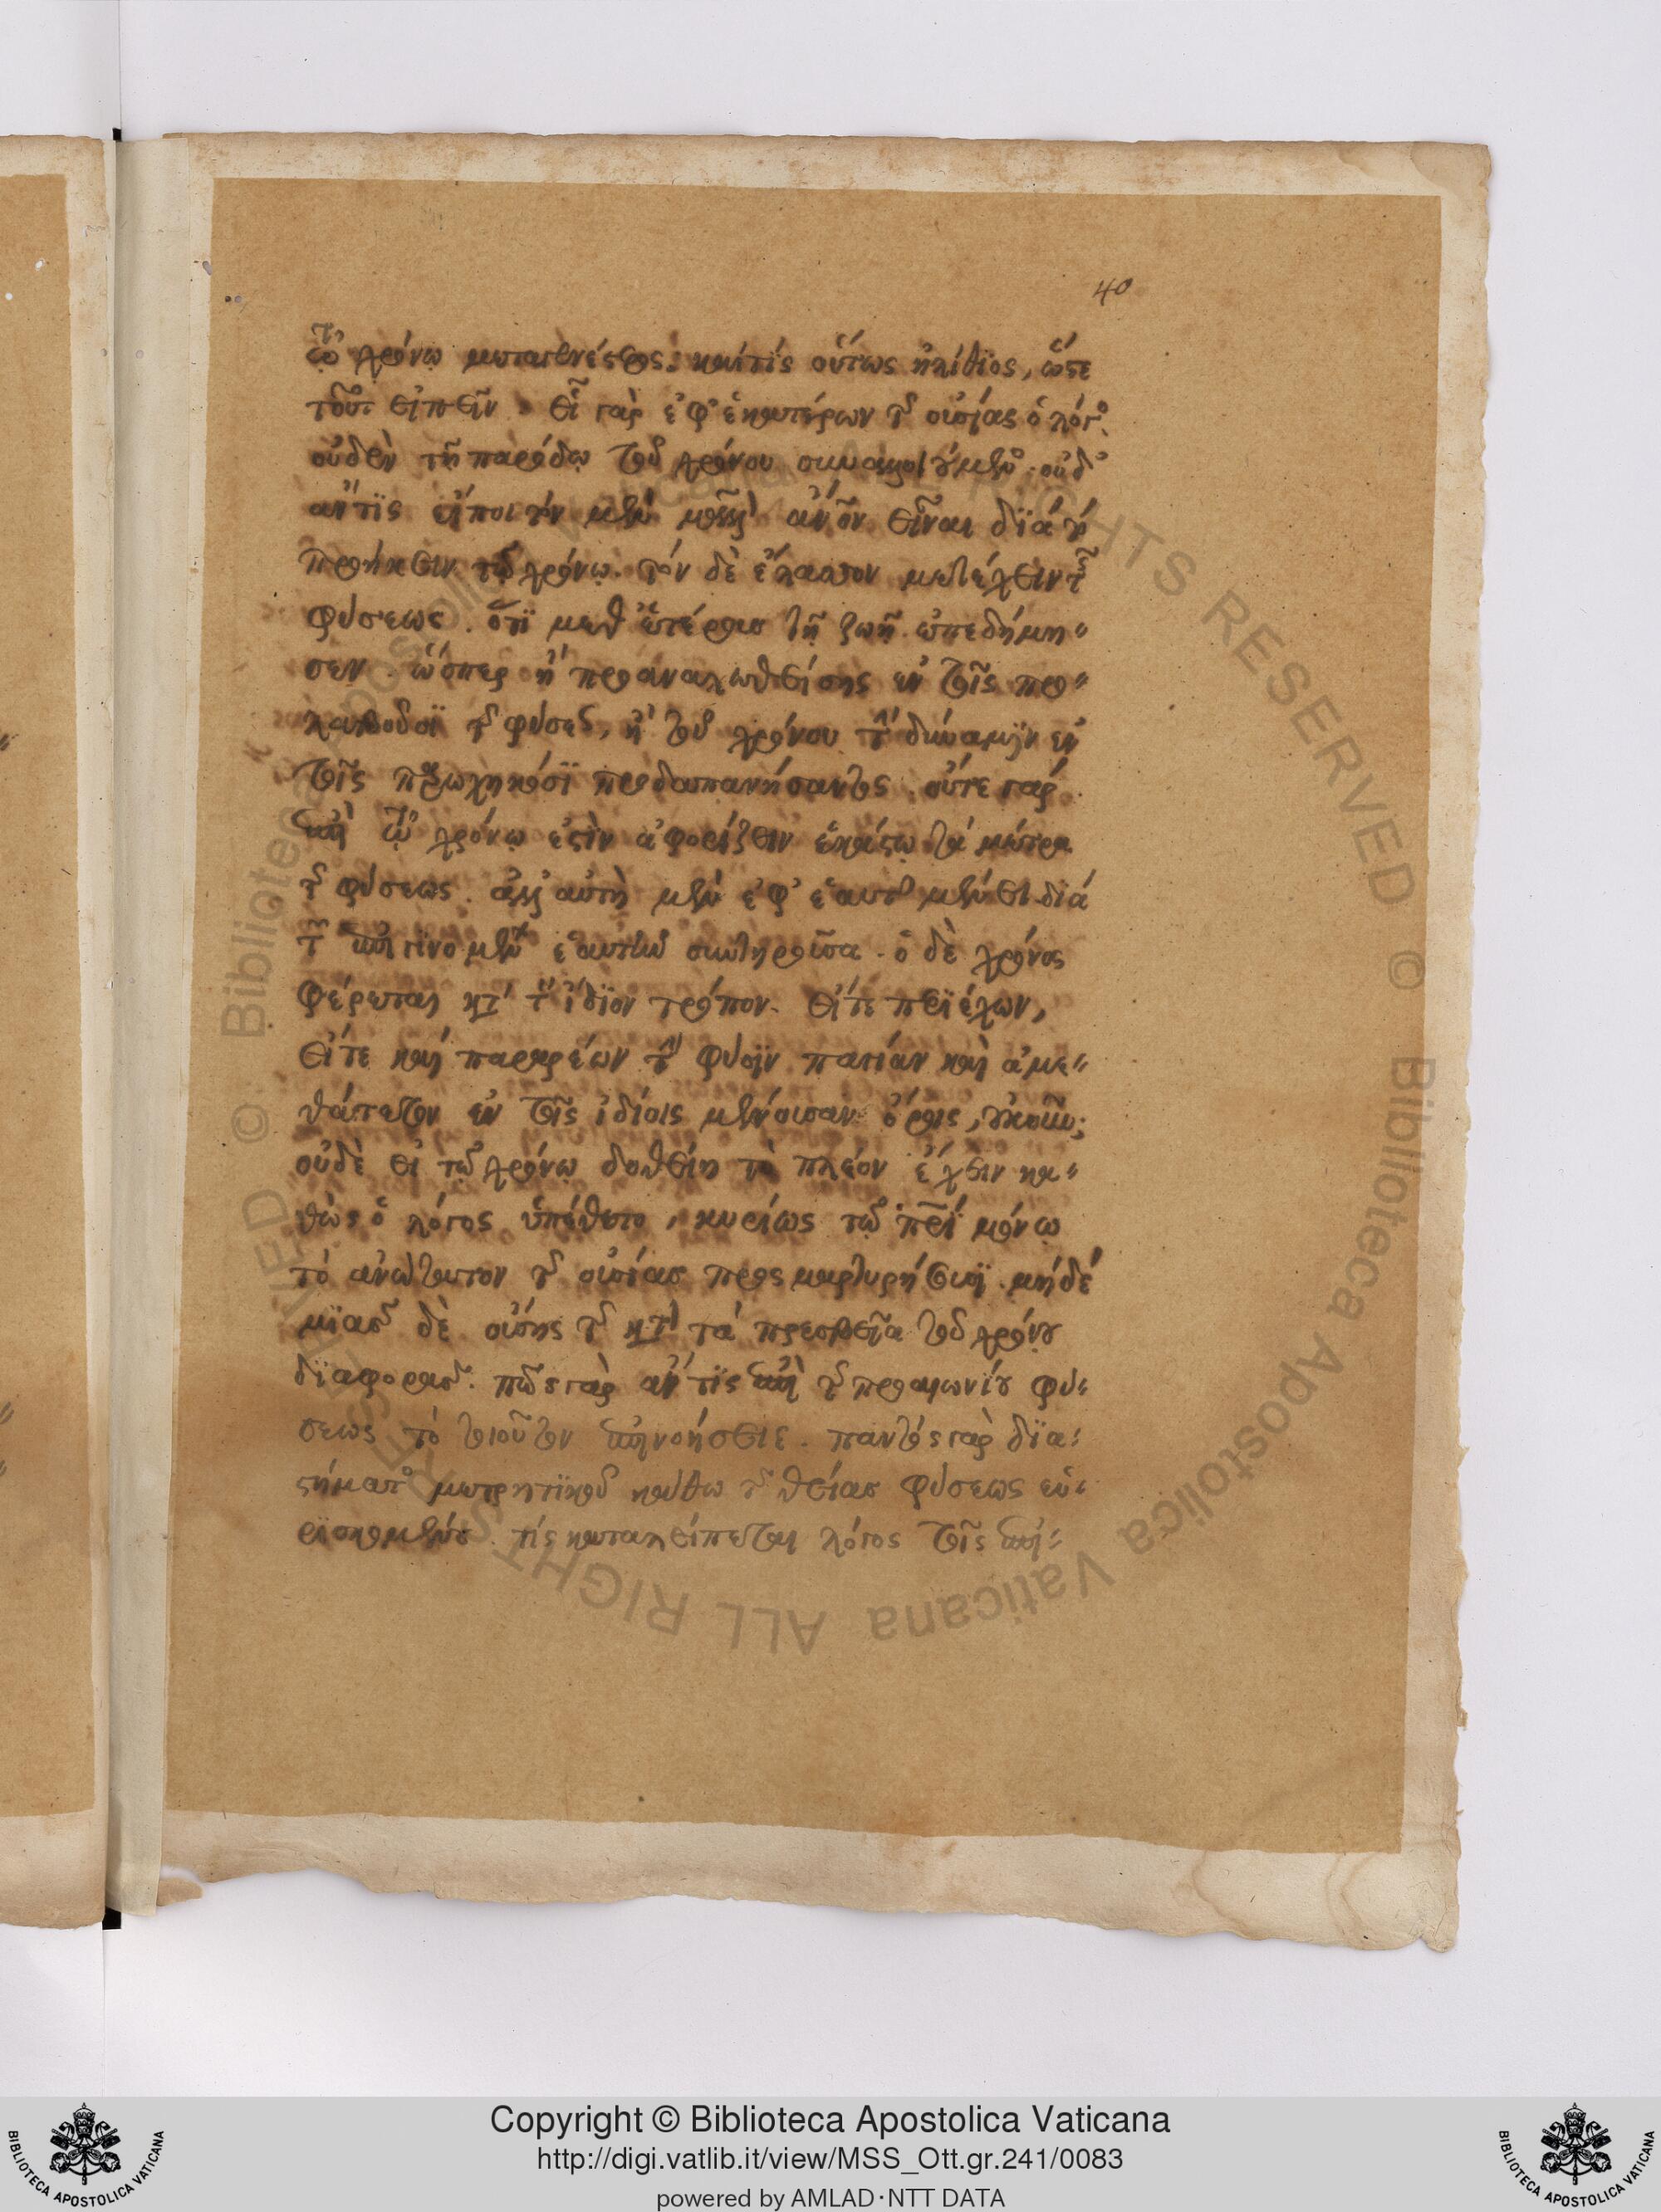 40
τῷ χρόνῳ μεταγενέστερος. καί τίς οὕτως ἠλίθιος, ὥστε
τοῦτο εἰπεῖν. εἷς γὰρ ἐφ' ἑκατέρων τῆς οὐσίας ὁ λόγος.
οὐδὲν τῇ παρόδῳ τοῦ χρόνου
ἄν τις εἴποι τὸν μὲν μᾶλλον ὂν εἶναι διὰ τὸ
προήκειν τῷ χρόνῳ. τὸν δὲ ἔλαττον μετέχειν τῆς
φύσεως. ὅτι μεθ' ἑτέρους τῇ ζωῇ ἐπεδήμη"
σεν. ὥσπερ ἢ προαναλωθείσης ἐν τοῖς προ"
λαβοῦσι τῆς φύσεως, ἢ τοῦ χρόνου τὴν δύναμιν ἐν
τοῖς παρῳχηκόσι προδαπανήσαντος. οὔτε γάρ
ἐπὶ τῷ χρόνῳ ἐστὶν ἀφορίζειν ἑκάστῳ τὰ μέτρα
τῆς φύσεως. ἀλλ' αὐτὴ μὲν ἐφ' ἑαυτῆς μένει διά
τῶν ἐπιγινομένων ἑαυτὴν συντηροῦσα. ὁ δὲ χρόνος
φέρεται κατὰ τὸν ἴδιον τρόπον. εἴτε περιέχων,
εἴτε καὶ παραρέων τὴν φύσιν παγίαν καὶ ἀμε"
τάθετον ἐν τοῖς ἰδίοις μένουσαν ὅροις,
οὐδὲ εἰ τῷ χρόνῳ δοθείη τὸ πλέον ἔχειν κα"
θὼς ὁ λόγος ὑπέθετο, κυρίως τῷ πρὶ μόνῳ
τὸ ἀνώτατον τῆς οὐσίας προσμαρτυρήσουσι. μηδὲ
μιᾶς δὲ οὔσης τῆς κατὰ τὰ πρεσβεῖα τοῦ χρόνου
διαφορᾶς. πῶς γὰρ ἄν τις ἐπὶ τῆς προαιωνίου φύ"
σεως τὸ τοιοῦτον ἐπινοήσειε. παντὸς γὰρ δια"
στήματος μετρητικοῦ κάτω τῆς θείας φύσεως εὑ"
ρισκομένου. τίς καταλείπεται λόγος τοῖς ἐπι"
Copyright © Biblioteca Apostolica Vaticana
http://digi.vatlib.it/view/MSS_Ott.gr.241/0083
powered by AMLAD·NTT DATA
BIBLIOTECA APOSTOLICA VATICANA
BIBLIOTECA APOSTOLICA VATICANA
© Biblioteca Apostolica Vaticana ALL RIGHTS RESERVED © Biblioteca Apostolica Vaticana ALL RIGHTS RESERVED